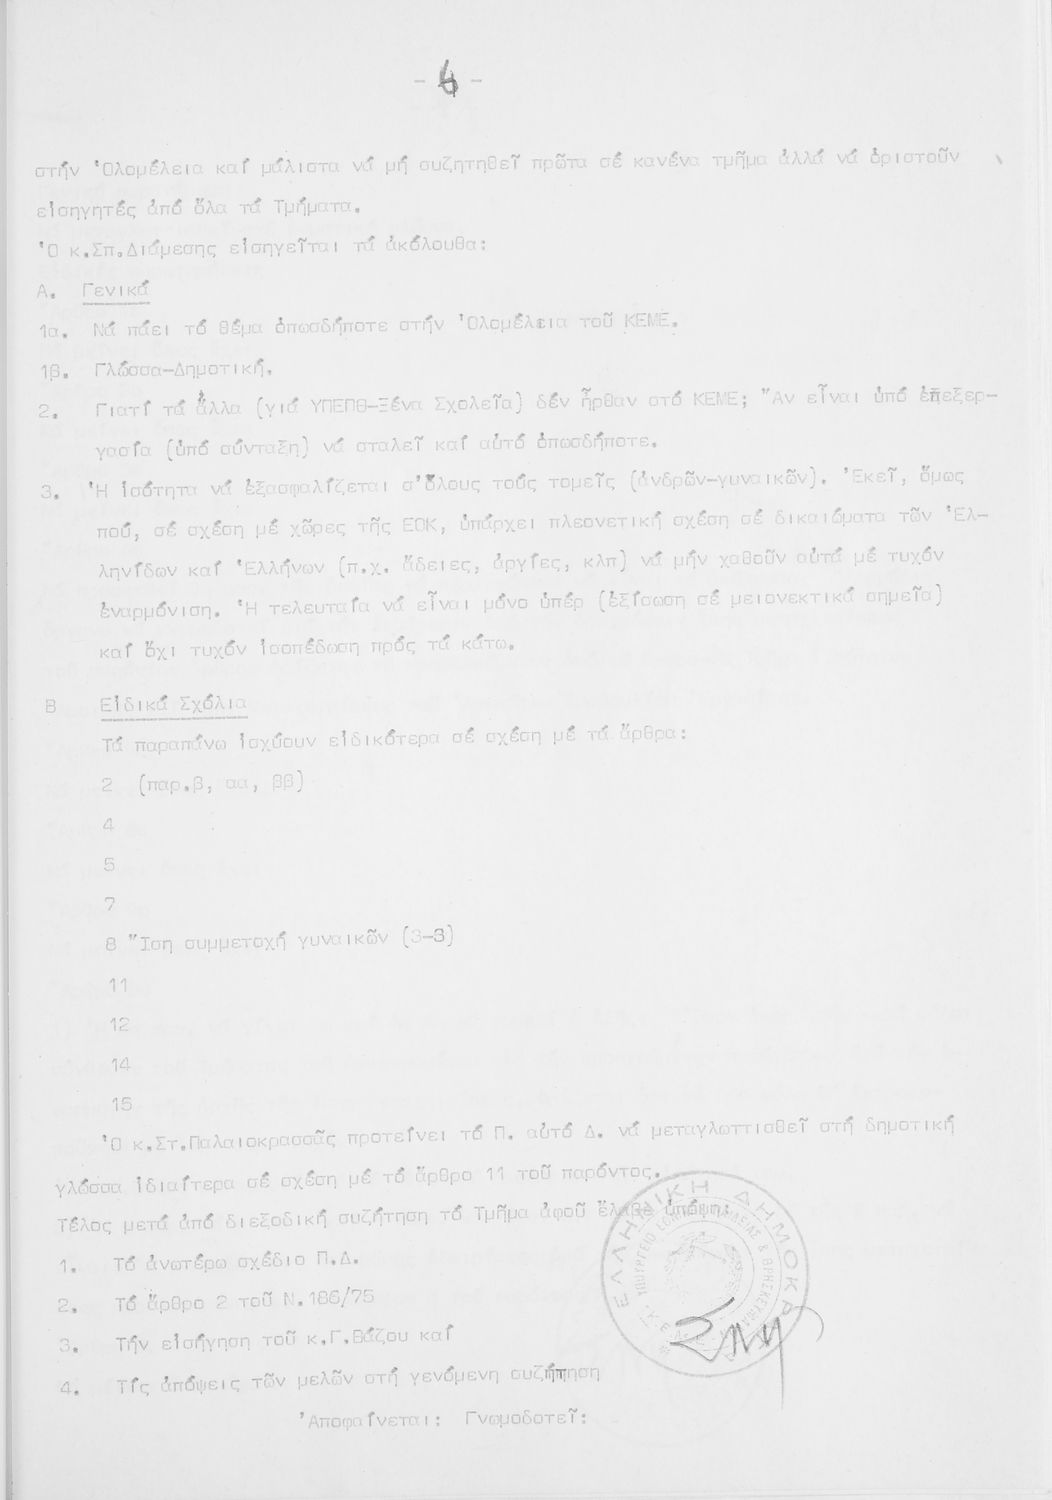 - 6 -
στήν Ὁλομέλεια καί μάλιστα νά μή συζητηθεῖ πρῶτα σέ κανένα τμῆμα ἀλλά νά ὁριστοῦν
εἰσηγητές ἀπό ὅλα τά Τμήματα.
Ὁ κ.Σπ.Διάμεσης εἰσηγεῖται τά ἀκόλουθα:
Α. Γενικά
1α. Νά πάει τό θέμα ὁπωσδήποτε στήν Ὁλομέλεια τοῦ ΚΕΜΕ.
1β. Γλώσσα-Δημοτική.
2. Γιατί τά ἄλλα (γιά ΥΠΕΠΘ-Ξένα Σχολεῖα) δέν ἦρθαν στό ΚΕΜΕ; Ἄν εἶναι ὑπό ἐπεξερ-
γασία (ὑπό σύνταξη) νά σταλεῖ καί αὐτό ὁπωσδήποτε.
3. Ἡ ἰσότητα νά ἐξασφαλίζεται σ'ὅλους τούς τομεῖς (ἀνδρῶν-γυναικῶν). Ἐκεῖ, ὅμως
πού, σέ σχέση μέ χῶρες τῆς ΕΟΚ, ὑπάρχει πλεονετική σχέση σέ δικαιώματα τῶν Ἑλ-
ληνίδων καί Ἑλλήνων (π.χ. ἄδειες, ἀργίες, κλπ) νά μήν χαθοῦν αὐτά μέ τυχόν
ἐναρμόνιση. Ἡ τελευταία νά εἶναι μόνο ὑπέρ (ἐξίσωση σέ μειονεκτικά σημεῖα)
καί ὄχι τυχόν ἰσοπέδωση πρός τά κάτω.
Β Εἰδικά Σχόλια
Τά παραπάνω ἰσχύουν εἰδικότερα σέ σχέση μέ τά ἄρθρα:
2 (παρ.β, αα, ββ)
4
5
7
8 Ἴση συμμετοχή γυναικῶν (3-3)
11
12
14
15
Ὁ κ.Στ.Παλαιοκρασσᾶς προτείνει τό Π. αὐτό Δ. νά μεταγλωττισθεῖ στή δημοτική
γλώσσα ἰδιαίτερα σέ σχέση μέ τό ἄρθρο 11 τοῦ παρόντος.
Τέλος μετά ἀπό διεξοδική συζήτηση τό Τμῆμα ἀφοῦ ἔλαβε ὑπόψη:
1. Τό ἀνωτέρω σχέδιο Π.Δ.
2. Τό ἄρθρο 2 τοῦ Ν.186/75
3. Τήν εἰσήγηση τοῦ κ.Γ.Βάζου καί
4. Τίς ἀπόψεις τῶν μελῶν στή γενόμενη συζήτηση
Ἀποφαίνεται: Γνωμοδοτεῖ:
ΕΛΛΗΝΙΚΗ ΔΗΜΟΚΡ